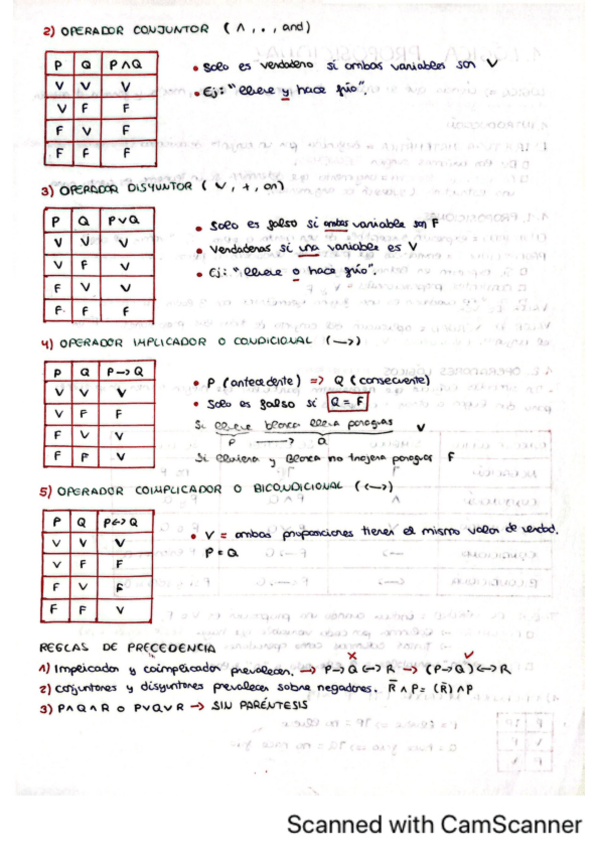 2) OPERADOR CONJUNTOR ( ∧ , . , and )
P Q P∧Q
V V V
V F F
F V F
F F F
• Solo es verdadero si ambas variables son V
• Ej: "llueve y hace frío".
3) OPERADOR DISYUNTOR ( ∨ , + , or )
P Q P∨Q
V V V
V F V
F V V
F F F
• Solo es falso si ambas variable son F
• Verdaderas si una variable es V
• Ej: "llueve o hace frío".
4) OPERADOR IMPLICADOR O CONDICIONAL (→)
P Q P→Q
V V V
V F F
F V V
F F V
• P (antecedente) ⇒ Q (consecuente)
• Solo es falso si Q = F
Si llueve blanca lleva paraguas V
P → Q
Si lloviera y Blanca no trajera paraguas F
5) OPERADOR COIMPLICADOR O BICONDICIONAL (↔)
P Q P↔Q
V V V
V F F
F V F
F F V
• V = ambas proposiciones tienen el mismo valor de verdad.
P = Q
REGLAS DE PRECEDENCIA
1) Implicador y coimplicador prevalecen. → P→Q↔R → (P→Q)↔R
2) conjuntores y disyuntores prevalecen sobre negadores. R̄ ∧ P = (R̄) ∧ P
3) P∧Q∧R o P∨Q∨R → SIN PARÉNTESIS
Scanned with CamScanner